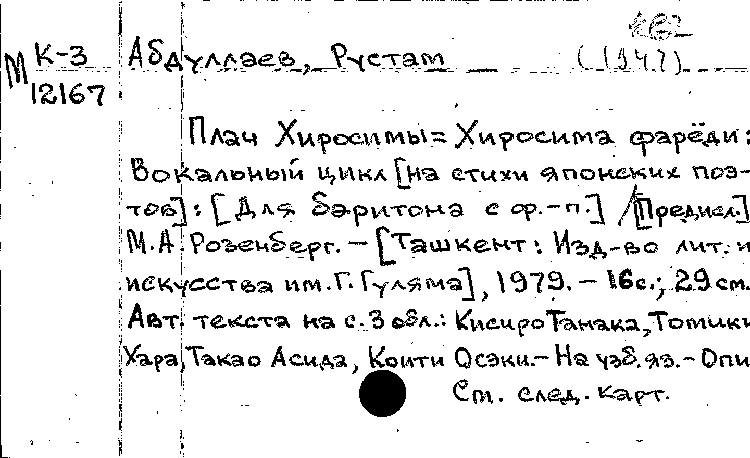 М К-3 Абдуллаев, Рустам (1947)
12167
Плач Хиросимы = Хиросима фарёди:
Вокальный цикл [на стихи японских поэ-
тов]: [Для баритона с ф.-п.] / [Предисл.]
М.А. Розенберг. – [Ташкент: Изд-во лит. и
искусства им. Г. Гуляма], 1979. – 16с.; 29см.
Авт. текста на с. 3 обл.: Кисиро Танака, Томики
Хара, Такао Асида, Коити Осэки. – На узб. яз. – Опи
См. след. карт.